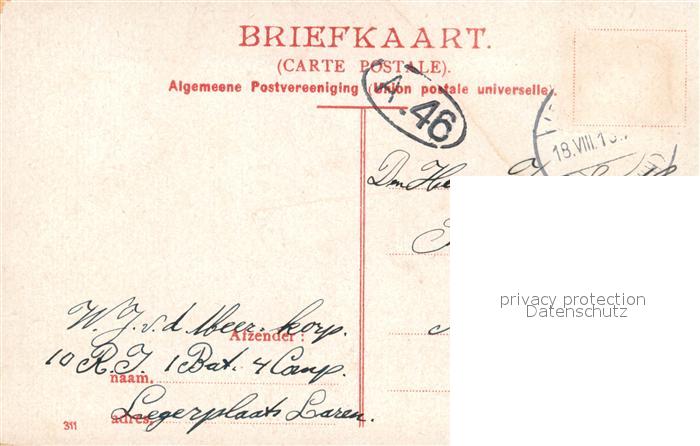 BRIEFKAART.
(CARTE POSTALE).
Algemeene Postvereeniging (Union postale universelle).
A.46
18.VIII.1
Den He
privacy protection
Datenschutz
W. J. v. d. Meer. korp.
Afzender:
10 R. I. 1 Bat. 4 Comp.
naam.
Legerplaats Laren.
adres.
311